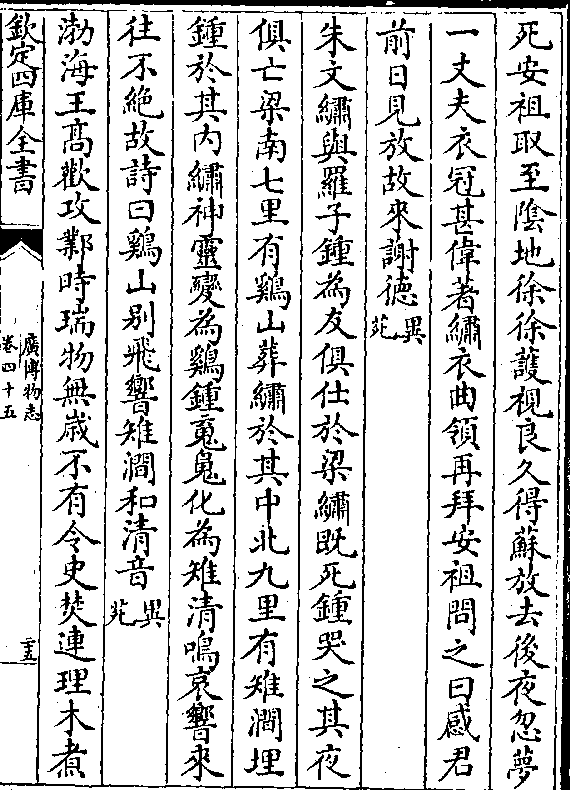 死安祖取至陰地徐徐護視良久得蘇放去後夜忽夢
一丈夫衣冠甚偉著繡衣曲領再拜安祖問之曰感君
前日見放故來謝德異苑
朱文繡與羅子鍾為友俱仕於梁繡既死鍾哭之其夜
俱亡梁南七里有鷄山葬繡於其中北九里有雉澗埋
鍾於其内繡神靈變為鷄鍾䰟鬼化為雉清鳴哀響來
往不絶故詩曰鷄山别飛響雉澗和清音異苑
渤海王髙歡攻鄴時瑞物無歳不有令史焚連理木煮
欽定四庫全書
廣博物志
卷四十五
二十五